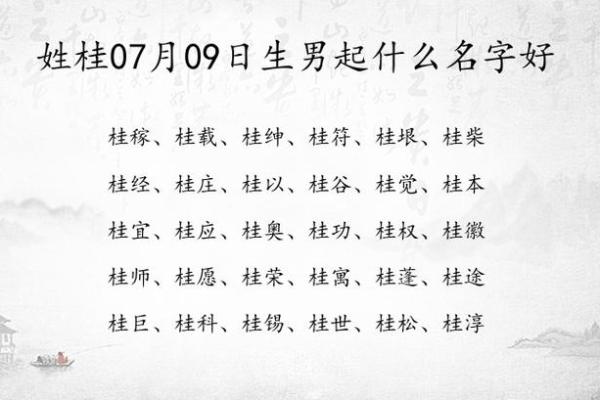 姓桂07月09日生男起什么名字好
桂稼、桂载、桂绅、桂符、桂垠、桂柴
桂经、桂庄、桂以、桂谷、桂觉、桂本
桂宜、桂应、桂奥、桂功、桂权、桂徽
桂师、桂愿、桂荣、桂寓、桂蓬、桂途
桂巨、桂科、桂锡、桂世、桂松、桂淳